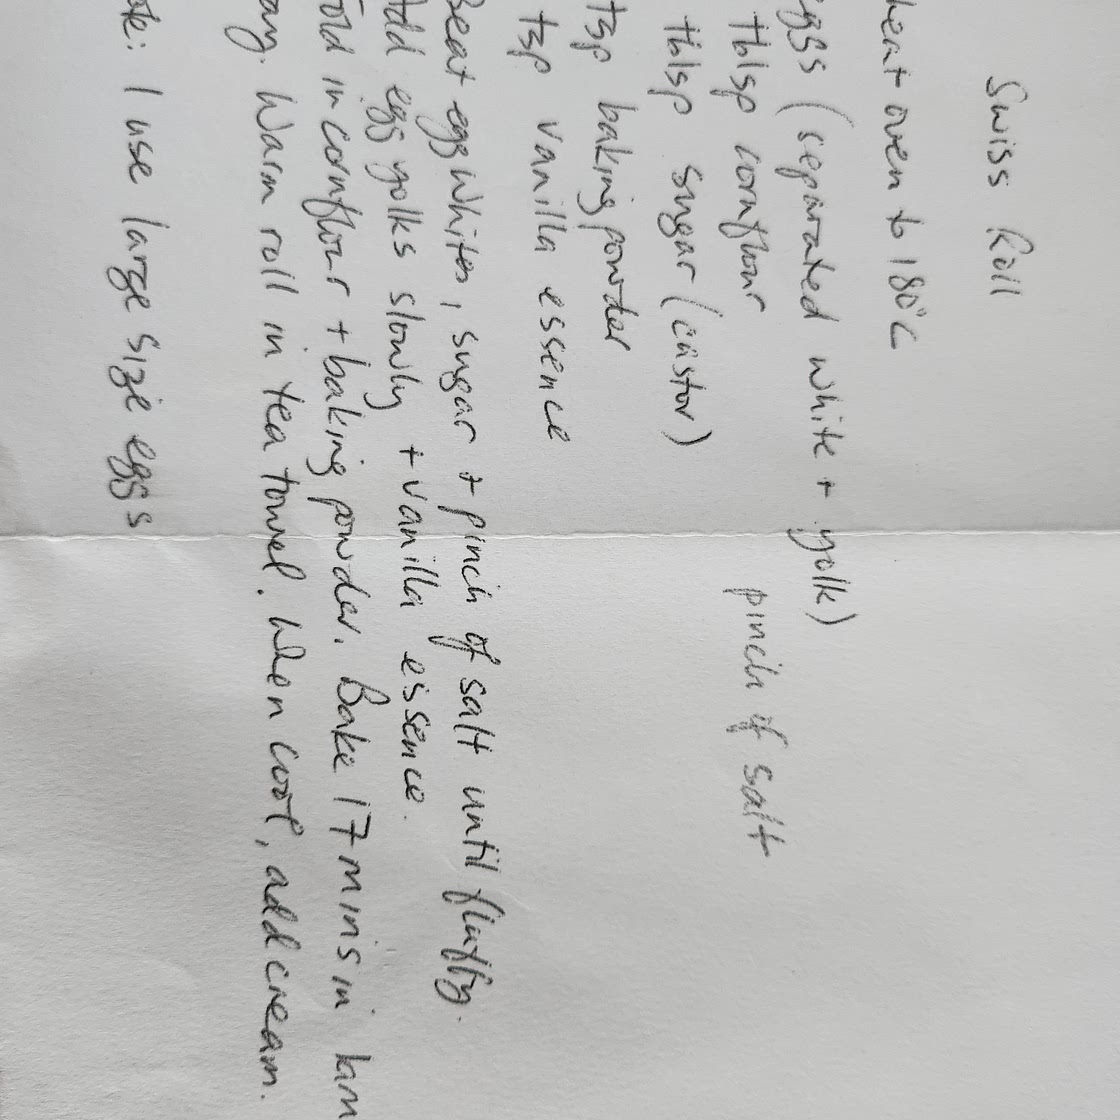 Swiss Roll
heat oven to 180°C
eggs (separated white + yolk)
tblsp cornflour pinch of salt
tblsp sugar (castor)
tsp baking powder
tsp vanilla essence
Beat egg whites, sugar + pinch of salt until fluffy.
Add egg yolks slowly + vanilla essence.
Fold in cornflour + baking powder. Bake 17 mins in lam
Warm roll in tea towel. When cool, add cream.
I use large size eggs